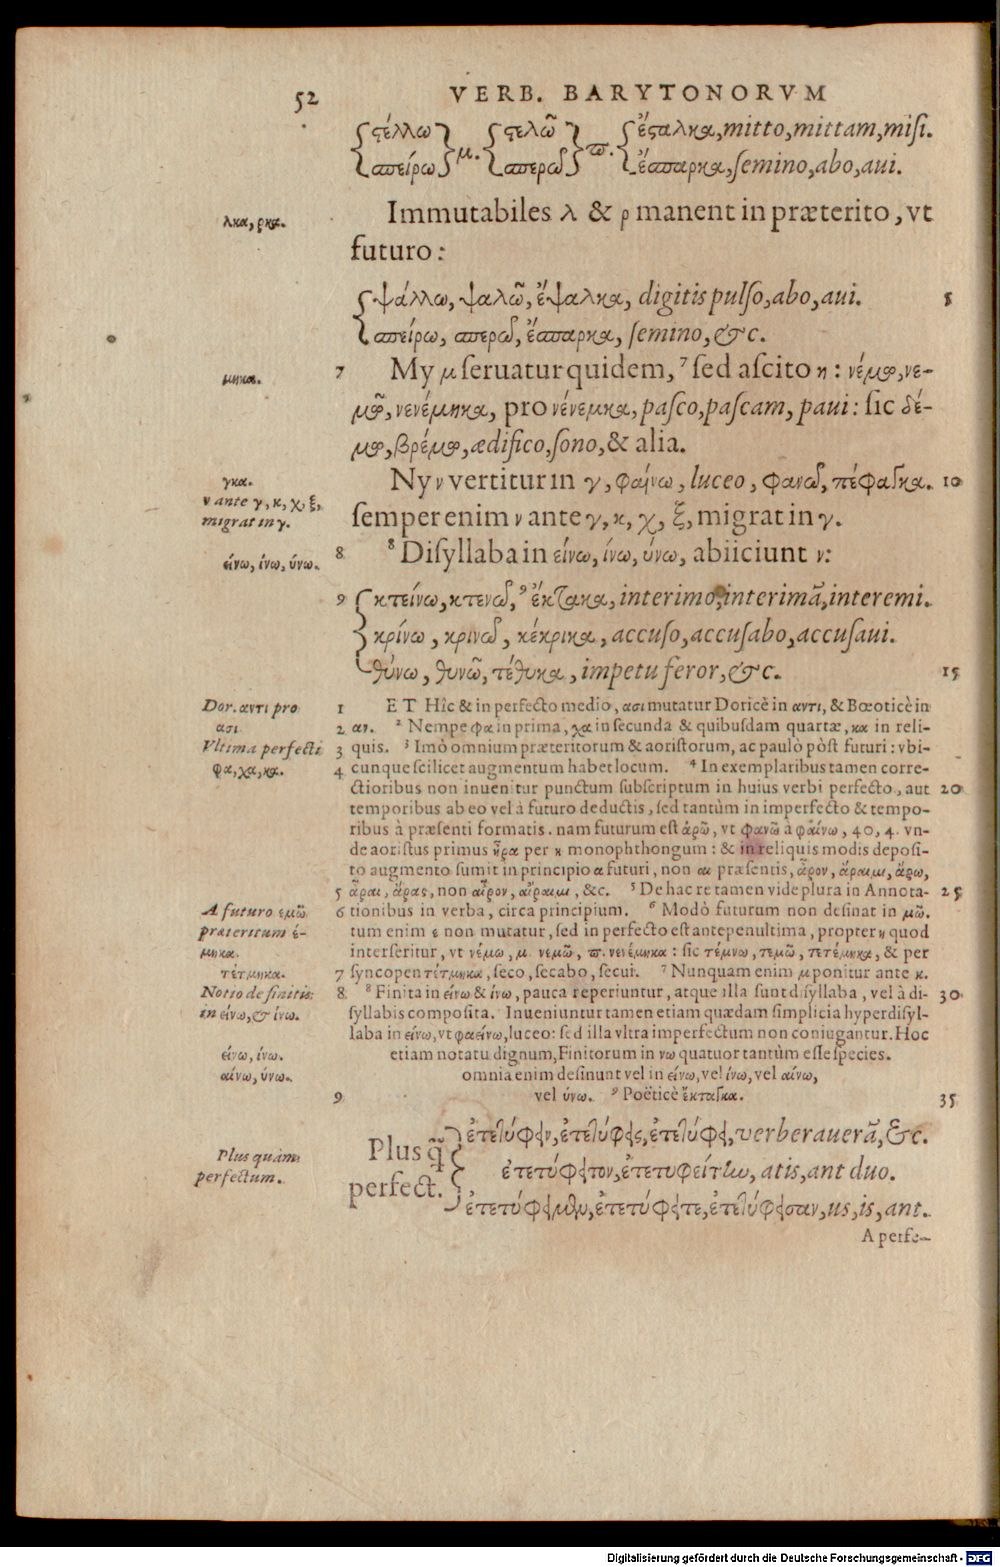 52 VERB. BARYTONORVM
στέλλω μ. στελῶ ϖ. ἔσταλκα, mitto, mittam, misi.
σπείρω σπερῶ ἔσπαρκα, semino, abo, aui.
λκα, ρκα. Immutabiles λ & ρ manent in præterito, vt
futuro:
ψάλλω, ψαλῶ, ἔψαλκα, digitis pulso, abo, aui. 5
σπείρω, σπερῶ, ἔσπαρκα, semino, &c.
μηκα. 7 My μ seruatur quidem, ⁷ sed ascito η: νέμω, νε-
μῶ, νενέμηκα, pro νένεμκα, pasco, pascam, paui: sic δέ-
μω, βρέμω, ædifico, sono, & alia.
γκα. Ny ν vertitur in γ, φαίνω, luceo, φανῶ, πέφαγκα. 10
ν ante γ, κ, χ, ξ,
migrat in γ. semper enim ν ante γ, κ, χ, ξ, migrat in γ.
είνω, ίνω, ύνω. 8 ⁸ Disyllaba in είνω, ίνω, ύνω, abiiciunt ν:
9 κτείνω, κτενῶ, ⁹ ἔκτακα, interimo, interimã, interemi.
κρίνω, κρινῶ, κέκρικα, accuso, accusabo, accusaui.
θύνω, θυνῶ, τέθυκα, impetu feror, &c. 15
Dor. αντι pro 1 ET Hîc & in perfecto medio, ασι mutatur Doricè in αντι, & Bœoticè in
ασι. 2 αν. ² Nempe φα in prima, χα in secunda & quibusdam quartæ, κα in reli-
Vltima perfecti 3 quis. ³ Imò omnium præteritorum & aoristorum, ac paulò pòst futuri: vbi-
φα, χα, κα. 4 cunque scilicet augmentum habet locum. ⁴ In exemplaribus tamen corre-
ctioribus non inuenitur punctum subscriptum in huius verbi perfecto, aut 20
temporibus ab eo vel à futuro deductis, sed tantùm in imperfecto & tempo-
ribus à præsenti formatis. nam futurum est ἀρῶ, vt φανῶ à φαίνω, 40, 4. vn-
de aoristus primus ἦρα per η monophthongum: & in reliquis modis deposi-
to augmento sumit in principio α futuri, non αι præsentis, ἆρον, ἄραιμι, ἄρω,
5 ἆραι, ἄρας, non αἶρον, αἴραιμι, &c. ⁵ De hac re tamen vide plura in Annota- 25
A futuro εμῶ 6 tionibus in verba, circa principium. ⁶ Modò futurum non desinat in μῶ.
præteritum έ- tum enim ε non mutatur, sed in perfecto est antepenultima, propter η quod
μηκα. interseritur, vt νέμω, μ. νεμῶ, ϖ. νενέμηκα: sic τέμνω, τεμῶ, τετέμηκα, & per
τέτμηκα. 7 syncopen τέτμηκα, seco, secabo, secui. ⁷ Nunquam enim μ ponitur ante κ.
Notio definitis 8 ⁸ Finita in είνω & ίνω, pauca reperiuntur, atque illa sunt disyllaba, vel à di- 30
in είνω, & ίνω. syllabis composita. Inueniuntur tamen etiam quædam simplicia hyperdisyl-
laba in είνω, vt φαείνω, luceo: sed illa vltra imperfectum non coniugantur. Hoc
είνω, ίνω. etiam notatu dignum, Finitorum in νω quatuor tantùm esse species.
αίνω, ύνω. omnia enim desinunt vel in είνω, vel ίνω, vel αίνω,
9 vel ύνω. ⁹ Poëticè ἔκταγκα. 35
Plus quàm
perfectum.
Plus q̃
perfect.
ἐτετύφειν, ἐτετύφεις, ἐτετύφει, verberauerã, &c.
ἐτετύφειτον, ἐτετυφείτην, atis, ant duo.
ἐτετύφειμεν, ἐτετύφειτε, ἐτετύφεισαν, us, is, ant.
A perfe-
Digitalisierung gefördert durch die Deutsche Forschungsgemeinschaft - DFG